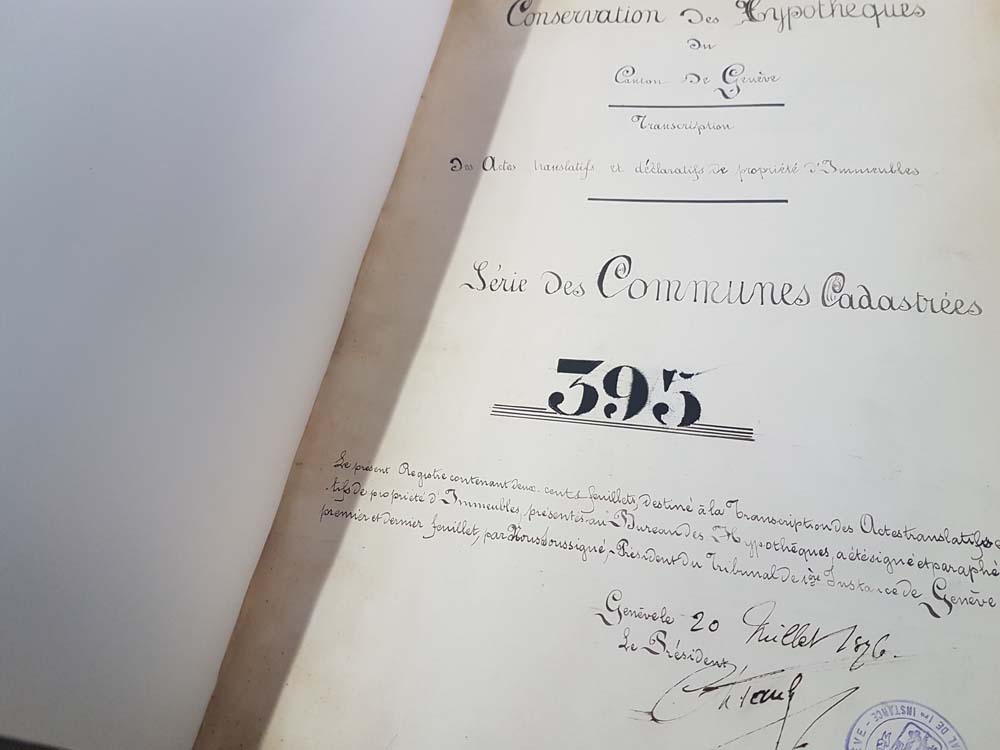 Conservation Des Hypothèques
Du
Canton De Genève
Transcription
Des Actes translatifs et déclaratifs de propriété d'Immeubles
Série Des Communes Cadastrées
395
Le présent Registre contenant deux cents feuillets, destiné à la Transcription des Actes translatifs
tifs de propriété d'Immeubles, présentés au Bureau des Hypothèques, a été signé et paraphé
premier et dernier feuillet, par Nous soussigné, Président du Tribunal de 1ère Instance de Genève
Genève le 20 Juillet 1896.
Le Président,
L DE 1re INSTANCE